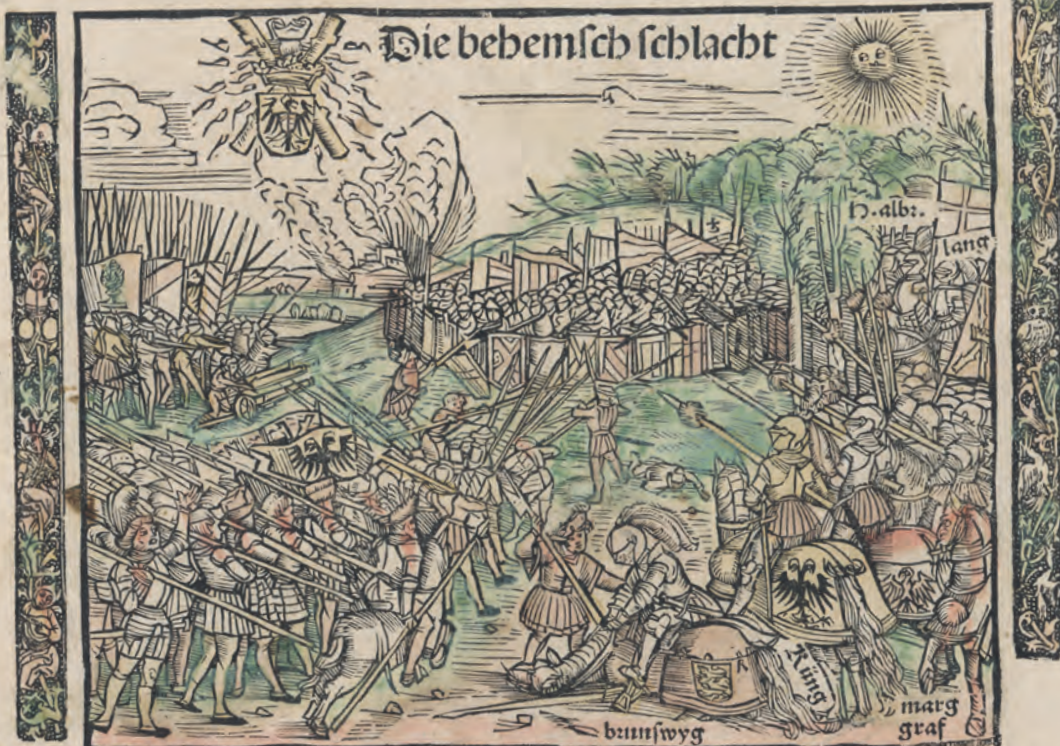 Die behemsch schlacht
H. albr.
lang
Küng
marg
graf
brunswyg